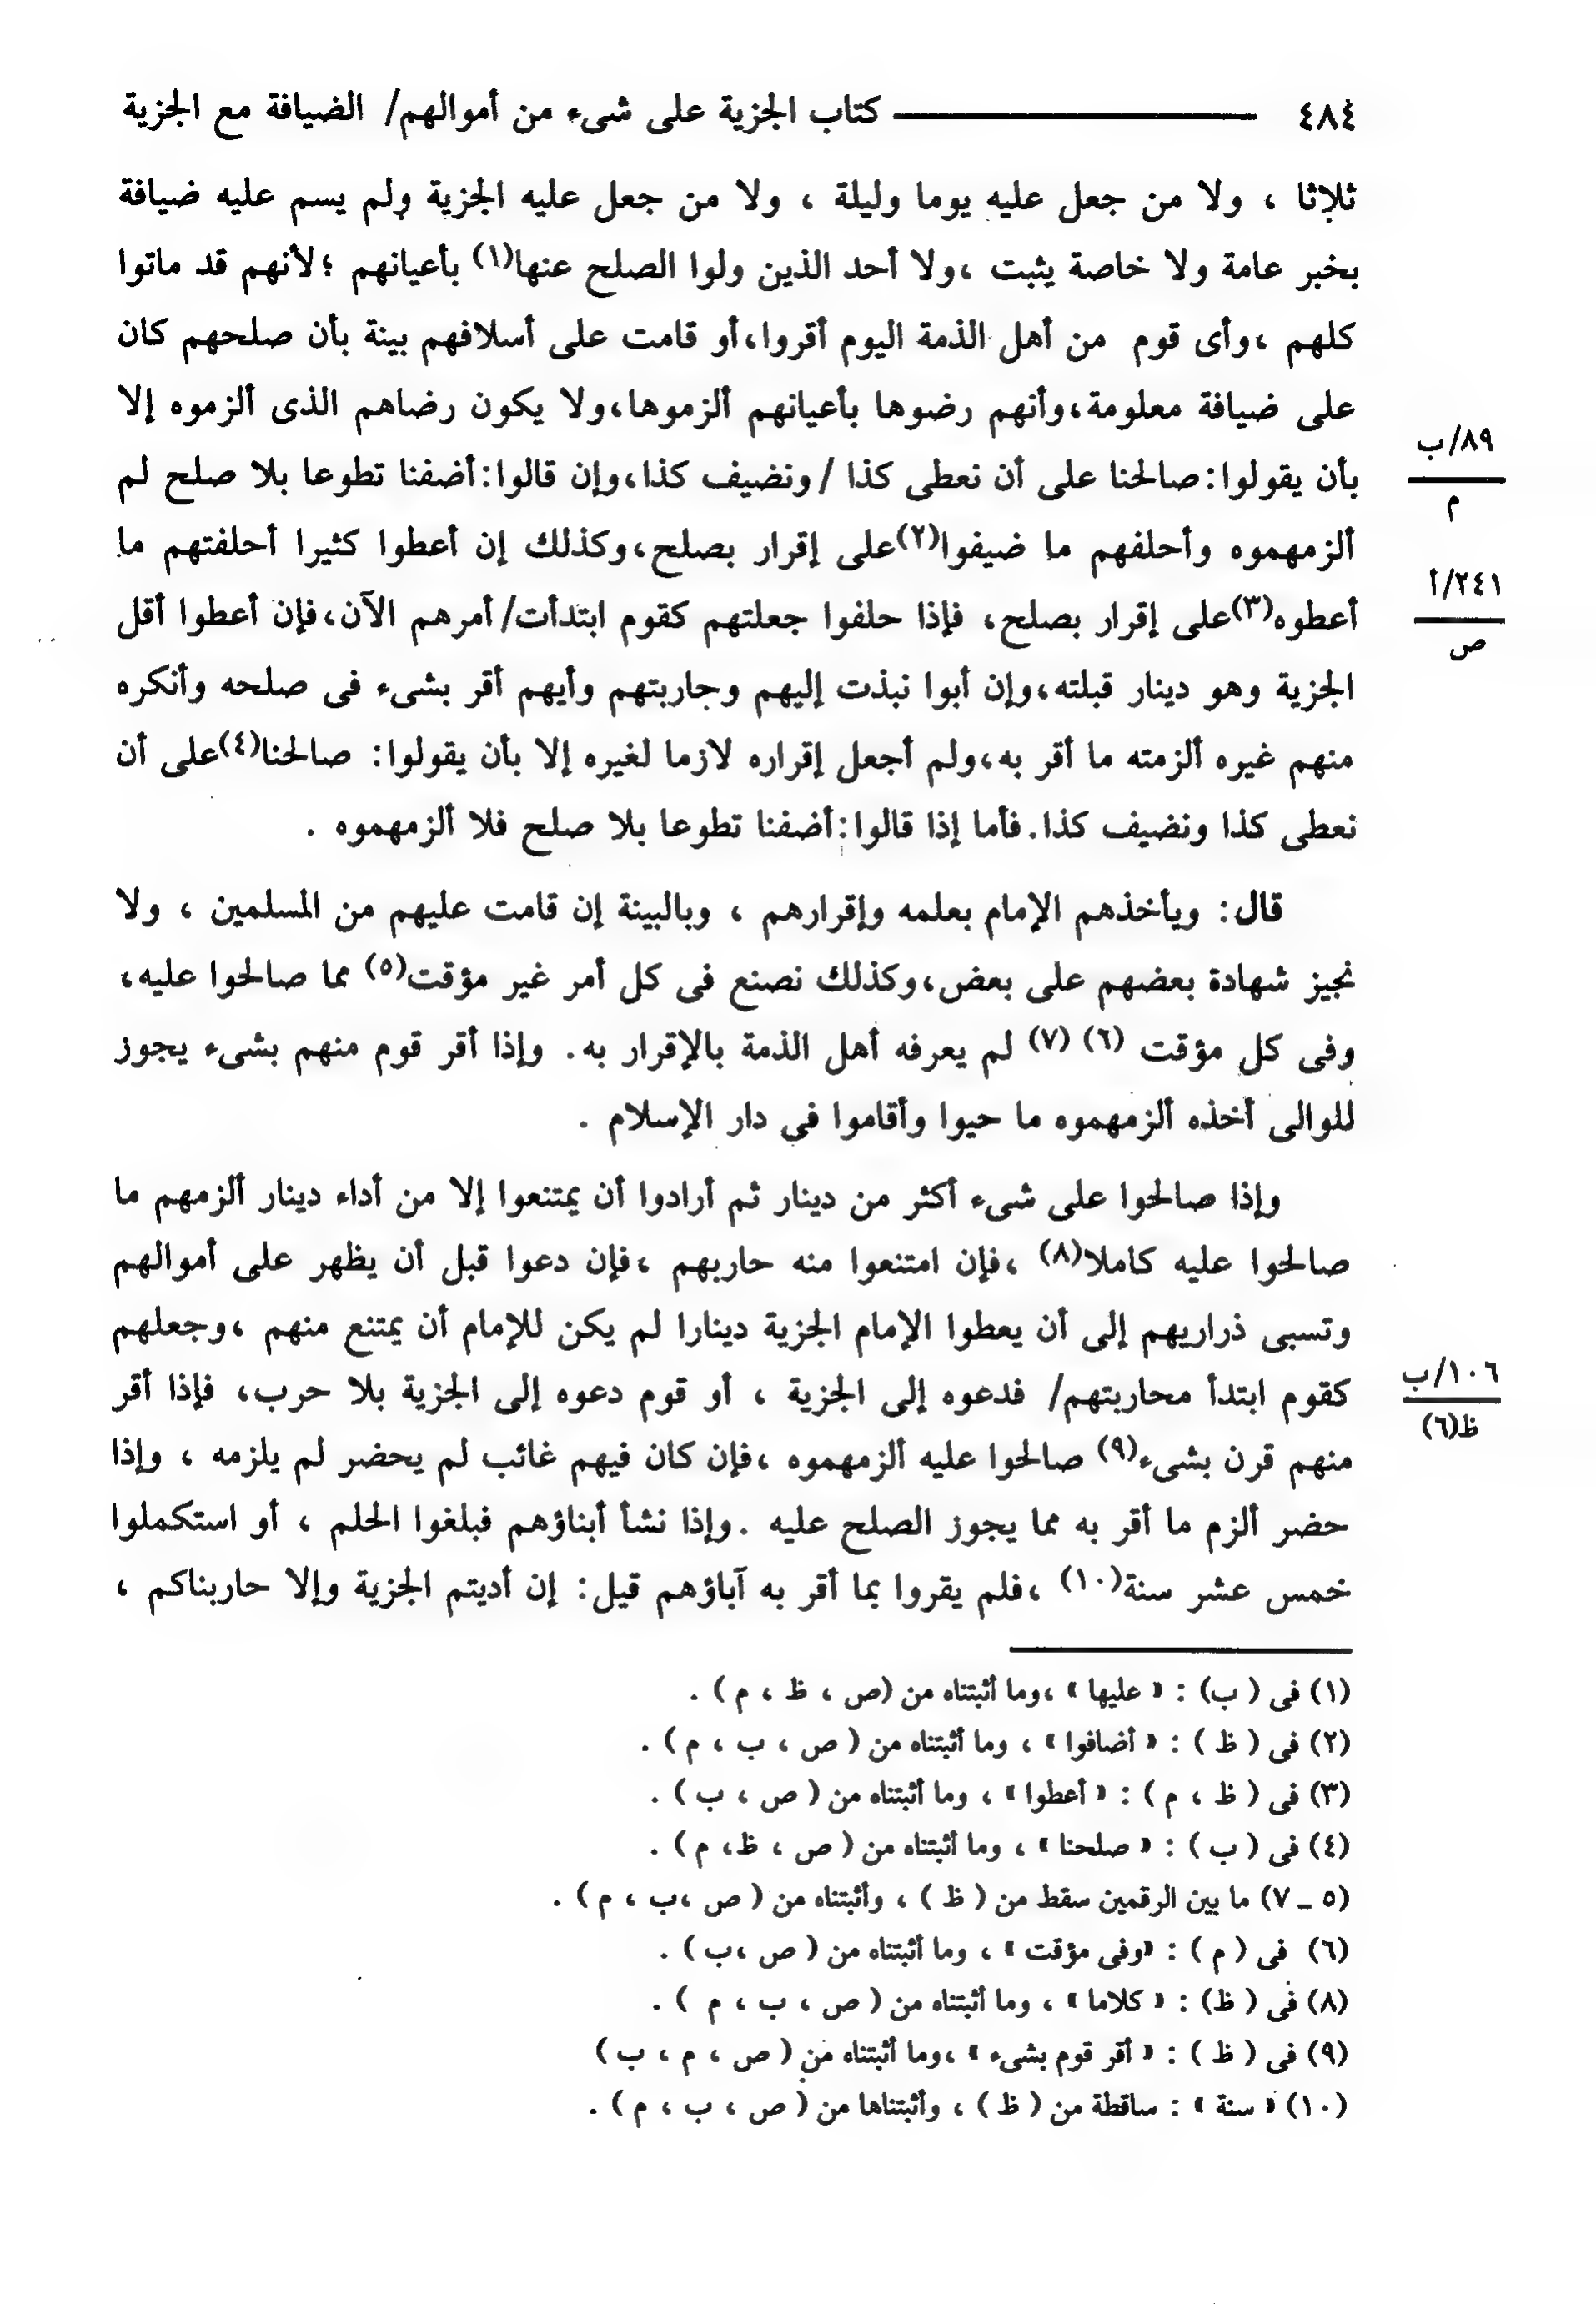 ٤٨٤ ــــــــــــ كتاب الجزية على شىء من أموالهم/ الضيافة مع الجزية
ثلاثا ، ولا من جعل عليه يوما وليلة ، ولا من جعل عليه الجزية ولم يسم عليه ضيافة
بخبر عامة ولا خاصة يثبت ،ولا أحد الذين ولوا الصلح عنها(١) بأعيانهم ؛لأنهم قد ماتوا
كلهم ،وأى قوم من أهل الذمة اليوم أقروا،أو قامت على أسلافهم بينة بأن صلحهم كان
على ضيافة معلومة،وأنهم رضوها بأعيانهم ألزموها،ولا يكون رضاهم الذى ألزموه إلا
٨٩/ب
بأن يقولوا:صالحنا على أن نعطى كذا /ونضيف كذا،وإن قالوا:أضفنا تطوعا بلا صلح لم
م
ألزمهموه وأحلفهم ما ضيفوا(٢)على إقرار بصلح،وكذلك إن أعطوا كثيرا أحلفتهم ما
٢٤١/أ
أعطوه(٣)على إقرار بصلح، فإذا حلفوا جعلتهم كقوم ابتدأت/أمرهم الآن،فإن أعطوا أقل
ص
الجزية وهو دينار قبلته،وإن أبوا نبذت إليهم وجاربتهم وأيهم أقر بشىء فى صلحه وأنكره
منهم غيره ألزمته ما أقر به،ولم أجعل إقراره لازما لغيره إلا بأن يقولوا: صالحنا(٤)على أن
نعطى كذا ونضيف كذا.فأما إذا قالوا:أضفنا تطوعا بلا صلح فلا ألزمهموه .
قال: ويأخذهم الإمام بعلمه وإقرارهم ، وبالبينة إن قامت عليهم من المسلمين ، ولا
نجيز شهادة بعضهم على بعض،وكذلك نصنع فى كل أمر غير مؤقت(٥) مما صالحوا عليه،
وفى كل مؤقت (٦) (٧) لم يعرفه أهل الذمة بالإقرار به. وإذا أقر قوم منهم بشىء يجوز
للوالى أخذه ألزمهموه ما حيوا وأقاموا فى دار الإسلام .
وإذا صالحوا على شىء أكثر من دينار ثم أرادوا أن يمتنعوا إلا من أداء دينار ألزمهم ما
صالحوا عليه كاملا(٨) ،فإن امتنعوا منه حاربهم ،فإن دعوا قبل أن يظهر على أموالهم
وتسبى ذراريهم إلى أن يعطوا الإمام الجزية دينارا لم يكن للإمام أن يمتنع منهم ،وجعلهم
١٠٦/ب
كقوم ابتدأ محاربتهم/ فدعوه إلى الجزية ، أو قوم دعوه إلى الجزية بلا حرب، فإذا أقر
ظ(٦)
منهم قرن بشىء(٩) صالحوا عليه ألزمهموه ،فإن كان فيهم غائب لم يحضر لم يلزمه ، وإذا
حضر ألزم ما أقر به مما يجوز الصلح عليه .وإذا نشأ أبناؤهم فبلغوا الحلم ، أو استكملوا
خمس عشر سنة(١٠) ،فلم يقروا بما أقر به آباؤهم قيل: إن أديتم الجزية وإلا حاربناكم ،
(١) فى ( ب) : « عليها » ،وما أثبتناه من (ص ، ظ ، م ) .
(٢) فى ( ظ ) : « أضافوا » ، وما أثبتناه من ( ص ، ب ، م ) .
(٣) فى ( ظ ، م ) : « أعطوا » ، وما أثبتناه من ( ص ، ب ) .
(٤) فى ( ب ) : « صلحنا » ، وما أثبتناه من ( ص ، ظ، م ) .
(٥ ــ ٧) ما بين الرقمين سقط من ( ظ ) ، وأثبتناه من ( ص ،ب ، م ) .
(٦) فى ( م ) : «وفى مؤقت » ، وما أثبتناه من ( ص ،ب ) .
(٨) فى ( ظ) : « كلاما » ، وما أثبتناه من ( ص ، ب ، م ) .
(٩) فى ( ظ ) : « أقر قوم بشىء » ،وما أثبتناه من ( ص ، م ، ب )
(١٠) « سنة » : ساقطة من ( ظ ) ، وأثبتناها من ( ص ، ب ، م ) .